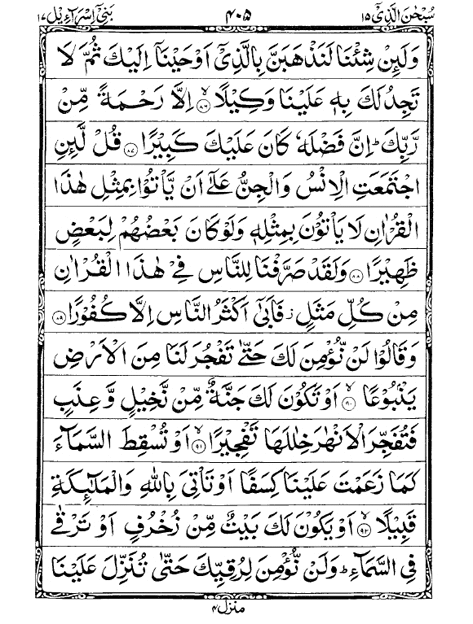 سُبْحٰنَ الَّذِيْٓ ١٥ ٤٠٥ بَنِيْٓ اِسْرَآءِيْل ١٧
وَلَئِنْ شِئْنَا لَنَذْهَبَنَّ بِالَّذِيْٓ اَوْحَيْنَآ اِلَيْكَ ثُمَّ لَا
تَجِدُ لَكَ بِهٖ عَلَيْنَا وَكِيْلًا ۙ﴿٨٦﴾ اِلَّا رَحْمَةً مِّنْ
رَّبِّكَ ؕ اِنَّ فَضْلَهٗ كَانَ عَلَيْكَ كَبِيْرًا ﴿٨٧﴾ قُلْ لَّئِنِ
اجْتَمَعَتِ الْاِنْسُ وَالْجِنُّ عَلٰٓى اَنْ يَّاْتُوْا بِمِثْلِ هٰذَا
الْقُرْاٰنِ لَا يَاْتُوْنَ بِمِثْلِهٖ وَلَوْ كَانَ بَعْضُهُمْ لِبَعْضٍ
ظَهِيْرًا ﴿٨٨﴾ وَلَقَدْ صَرَّفْنَا لِلنَّاسِ فِيْ هٰذَا الْقُرْاٰنِ
مِنْ كُلِّ مَثَلٍ ؗ فَاَبٰٓى اَكْثَرُ النَّاسِ اِلَّا كُفُوْرًا ﴿٨٩﴾
وَقَالُوْا لَنْ نُّؤْمِنَ لَكَ حَتّٰى تَفْجُرَ لَنَا مِنَ الْاَرْضِ
يَنْۢبُوْعًا ۙ﴿٩٠﴾ اَوْ تَكُوْنَ لَكَ جَنَّةٌ مِّنْ نَّخِيْلٍ وَّعِنَبٍ
فَتُفَجِّرَ الْاَنْهٰرَ خِلٰلَهَا تَفْجِيْرًا ۙ﴿٩١﴾ اَوْ تُسْقِطَ السَّمَآءَ
كَمَا زَعَمْتَ عَلَيْنَا كِسَفًا اَوْ تَاْتِيَ بِاللّٰهِ وَالْمَلٰٓئِكَةِ
قَبِيْلًا ۙ﴿٩٢﴾ اَوْ يَكُوْنَ لَكَ بَيْتٌ مِّنْ زُخْرُفٍ اَوْ تَرْقٰى
فِي السَّمَآءِ ؕ وَلَنْ نُّؤْمِنَ لِرُقِيِّكَ حَتّٰى تُنَزِّلَ عَلَيْنَا
منزل ٤